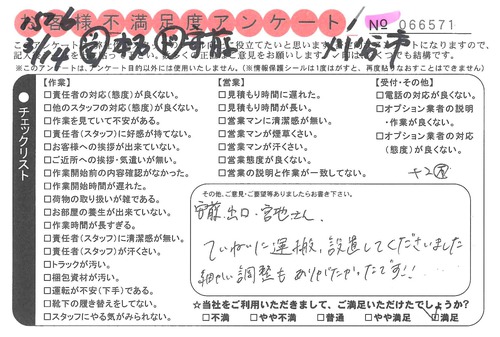 お客様不満足度アンケート
No 066571
記入
※このアンケートは、アンケート目的以外には使用いたしません。(※情報保護シールは1度はがすと、再度貼りなおすことはできません)
チェックリスト
【作業】
□責任者の対応(態度)が良くない。
□他のスタッフの対応(態度)が良くない。
□作業を見ていて不安がある。
□責任者(スタッフ)に好感が持てない。
□お客様への挨拶が出来ていない。
□ご近所への挨拶・気遣いが無い。
□作業開始前の内容確認がなかった。
□作業開始時間が遅れた。
□荷物の取り扱いが雑である。
□お部屋の養生が出来ていない。
□作業時間が長すぎる。
□責任者(スタッフ)に清潔感が無い。
□責任者(スタッフ)が汗くさい。
□トラックが汚い。
□梱包資材が汚い。
□運転が不安(下手)である。
□靴下の履き替えをしてない。
□スタッフにやる気がみられない。
【営業】
□見積もり時間に遅れた。
□見積もり時間が長い。
□営業マンに清潔感が無い。
□営業マンが煙草くさい。
□営業マンが汗くさい。
□営業態度が良くない。
□営業の説明と作業が一致してない。
【受付・その他】
□電話の対応が良くない。
□オプション業者の説明
・作業が良くない。
□オプション業者の対応
(態度)が良くない。
その他、ご意見・ご要望等ありましたらお書き下さい。
安藤、出口、宮地さん、
ていねいに運搬、設置してくださいました
細かい調整もありがたかったです!!
☆当社をご利用いただきまして、ご満足いただけたでしょうか?
□不満 □やや不満 □普通 □やや満足 ☑満足